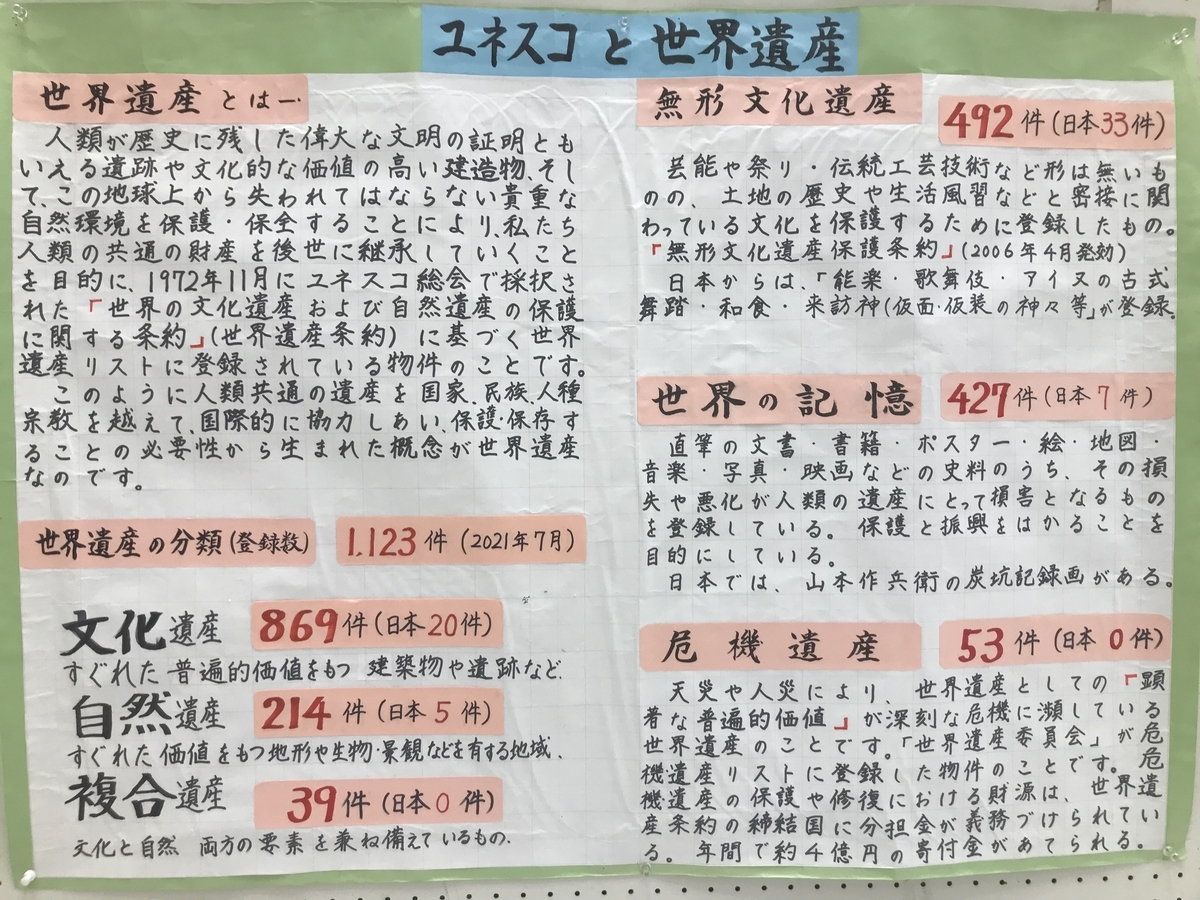 ユネスコと世界遺産
世界遺産とは―
人類が歴史に残した偉大な文明の証明とも
いえる遺跡や文化的な価値の高い建造物、そし
て、この地球上から失われてはならない貴重な
自然環境を保護・保全することにより、私たち
人類の共通の財産を後世に継承していくこと
を目的に、1972年11月にユネスコ総会で採択さ
れた「世界の文化遺産および自然遺産の保護
に関する条約」(世界遺産条約)に基づく世界
遺産リストに登録されている物件のことです。
このように人類共通の遺産を国家、民族、人種
宗教を越えて、国際的に協力しあい、保護・保存す
ることの必要性から生まれた概念が世界遺産
なのです。
世界遺産の分類(登録数) 1,123件(2021年7月)
文化遺産 869件(日本20件)
すぐれた普遍的価値をもつ 建築物や遺跡など.
自然遺産 214件(日本5件)
すぐれた価値をもつ地形や生物・景観などを有する地域.
複合遺産 39件(日本0件)
文化と自然 両方の要素を兼ね備えているもの.
無形文化遺産 492件(日本33件)
芸能や祭り・伝統工芸技術など形は無いも
のの、土地の歴史や生活風習などと密接に関
わっている文化を保護するために登録したもの。
「無形文化遺産保護条約」(2006年4月発効)
日本からは、「能楽・歌舞伎・アイヌの古式
舞踏・和食・来訪神(仮面・仮装の神々等)」が登録。
世界の記憶 427件(日本7件)
直筆の文書・書籍・ポスター・絵・地図・
音楽・写真・映画などの史料のうち、その損
失や悪化が人類の遺産にとって損害となるもの
を登録している。保護と振興をはかることを
目的にしている。
日本では、山本作兵衛の炭坑記録画がある。
危機遺産 53件(日本0件)
天災や人災により、世界遺産としての「顕
著な普遍的価値」が深刻な危機に瀕している
世界遺産のことです。「世界遺産委員会」が危
機遺産リストに登録した物件のことです。危
機遺産の保護や修復における財源は、世界遺
産条約の締結国に分担金が義務づけられてい
る。年間で約4億円の寄付金があてられる。